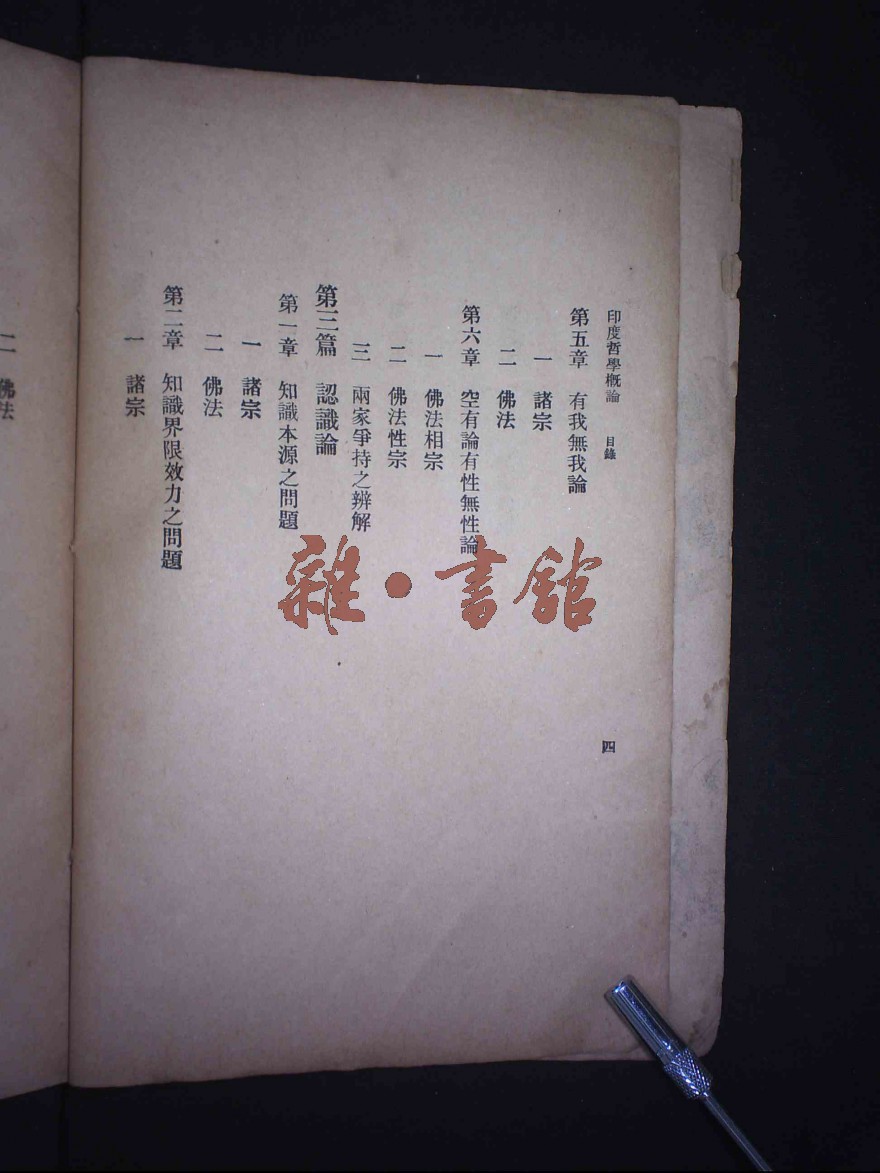 印度哲學概論 目錄
第五章 有我無我論
一 諸宗
二 佛法
第六章 空有論有性無性論
一 佛法相宗
二 佛法性宗
三 兩家爭持之辨解
第三篇 認識論
第一章 知識本源之問題
一 諸宗
二 佛法
第二章 知識界限效力之問題
一 諸宗
四
二 佛法
雜·書館